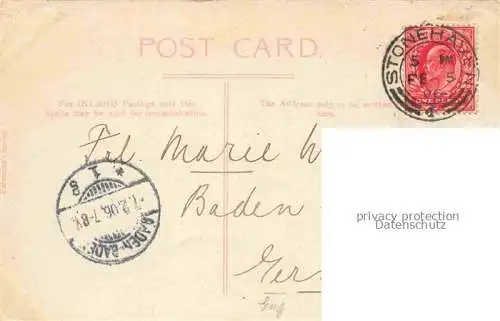 POST CARD.
For INLAND Postage only this
space may be used for communication.
The Address only to be written
here.
STONEHAVEN
FE 5
06
ONE PENNY
Frl Marie W
Baden
Ger
Eng
* 1 *
7.2.06. 7-8V.
BADEN-BADEN
privacy protection
Datenschutz